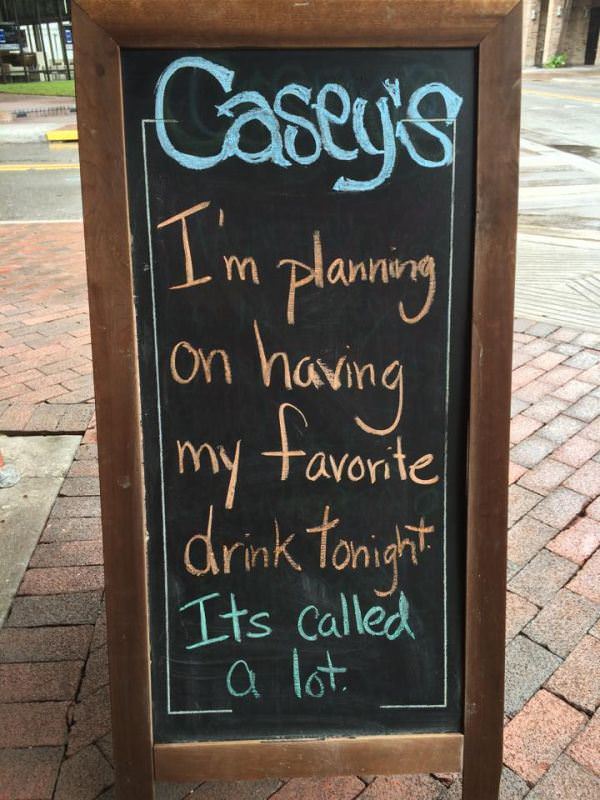 Casey's
I'm planning
on having
my favorite
drink tonight.
Its called
a lot.